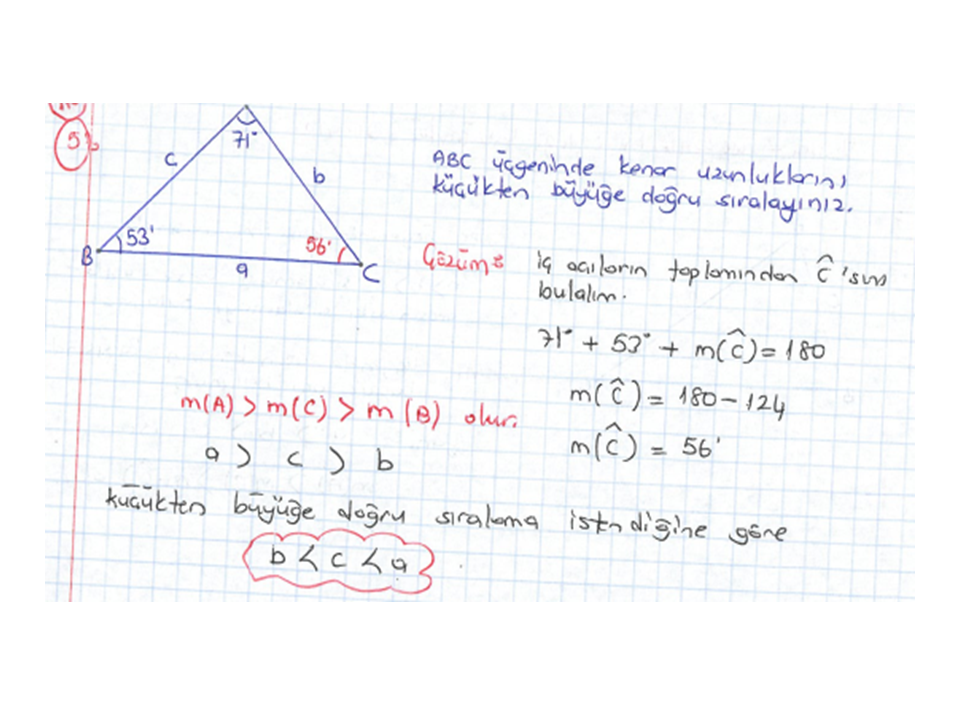 5
71°
c
b
53°
56°
B
a
C
ABC üçgeninde kenar uzunluklarını
küçükten büyüğe doğru sıralayınız.
Çözüm: iç açıların toplamından Ĉ'sını
bulalım.
71° + 53° + m(Ĉ) = 180
m(Ĉ) = 180 - 124
m(Ĉ) = 56°
m(A) > m(C) > m(B) olur.
a > c > b
küçükten büyüğe doğru sıralama istendiğine göre
b < c < a